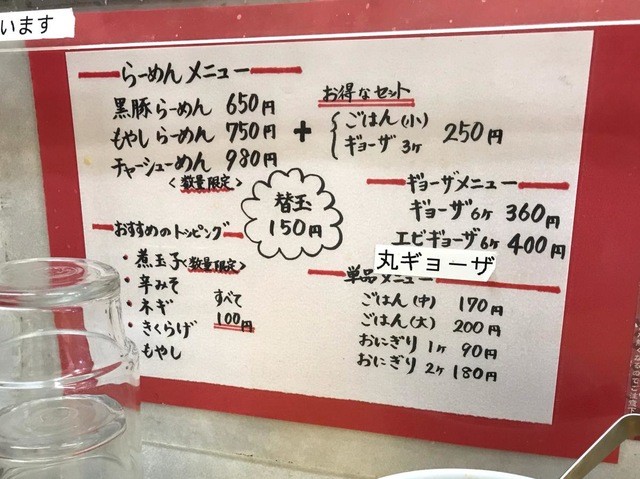 います
らーめんメニュー
黒豚らーめん 650円
もやしらーめん 750円
チャーシューめん 980円
<数量限定>
+
お得なセット
ごはん(小)
ギョーザ 3ヶ
250円
替玉
150円
おすすめのトッピング
・煮玉子<数量限定>
・辛みそ
・ネギ
・きくらげ
もやし
すべて
100円
ギョーザメニュー
ギョーザ6ヶ 360円
エビギョーザ6ヶ 400円
丸ギョーザ
単品メニュー
ごはん(中) 170円
ごはん(大) 200円
おにぎり 1ヶ 90円
おにぎり 2ヶ 180円